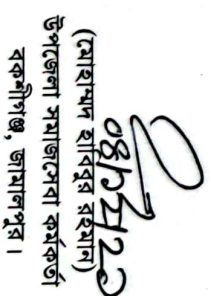 ০৪/১২/২১
(মোহাম্মদ হাবিবুর রহমান)
উপজেলা সমাজসেবা কর্মকর্তা
বকশীগঞ্জ, জামালপুর।